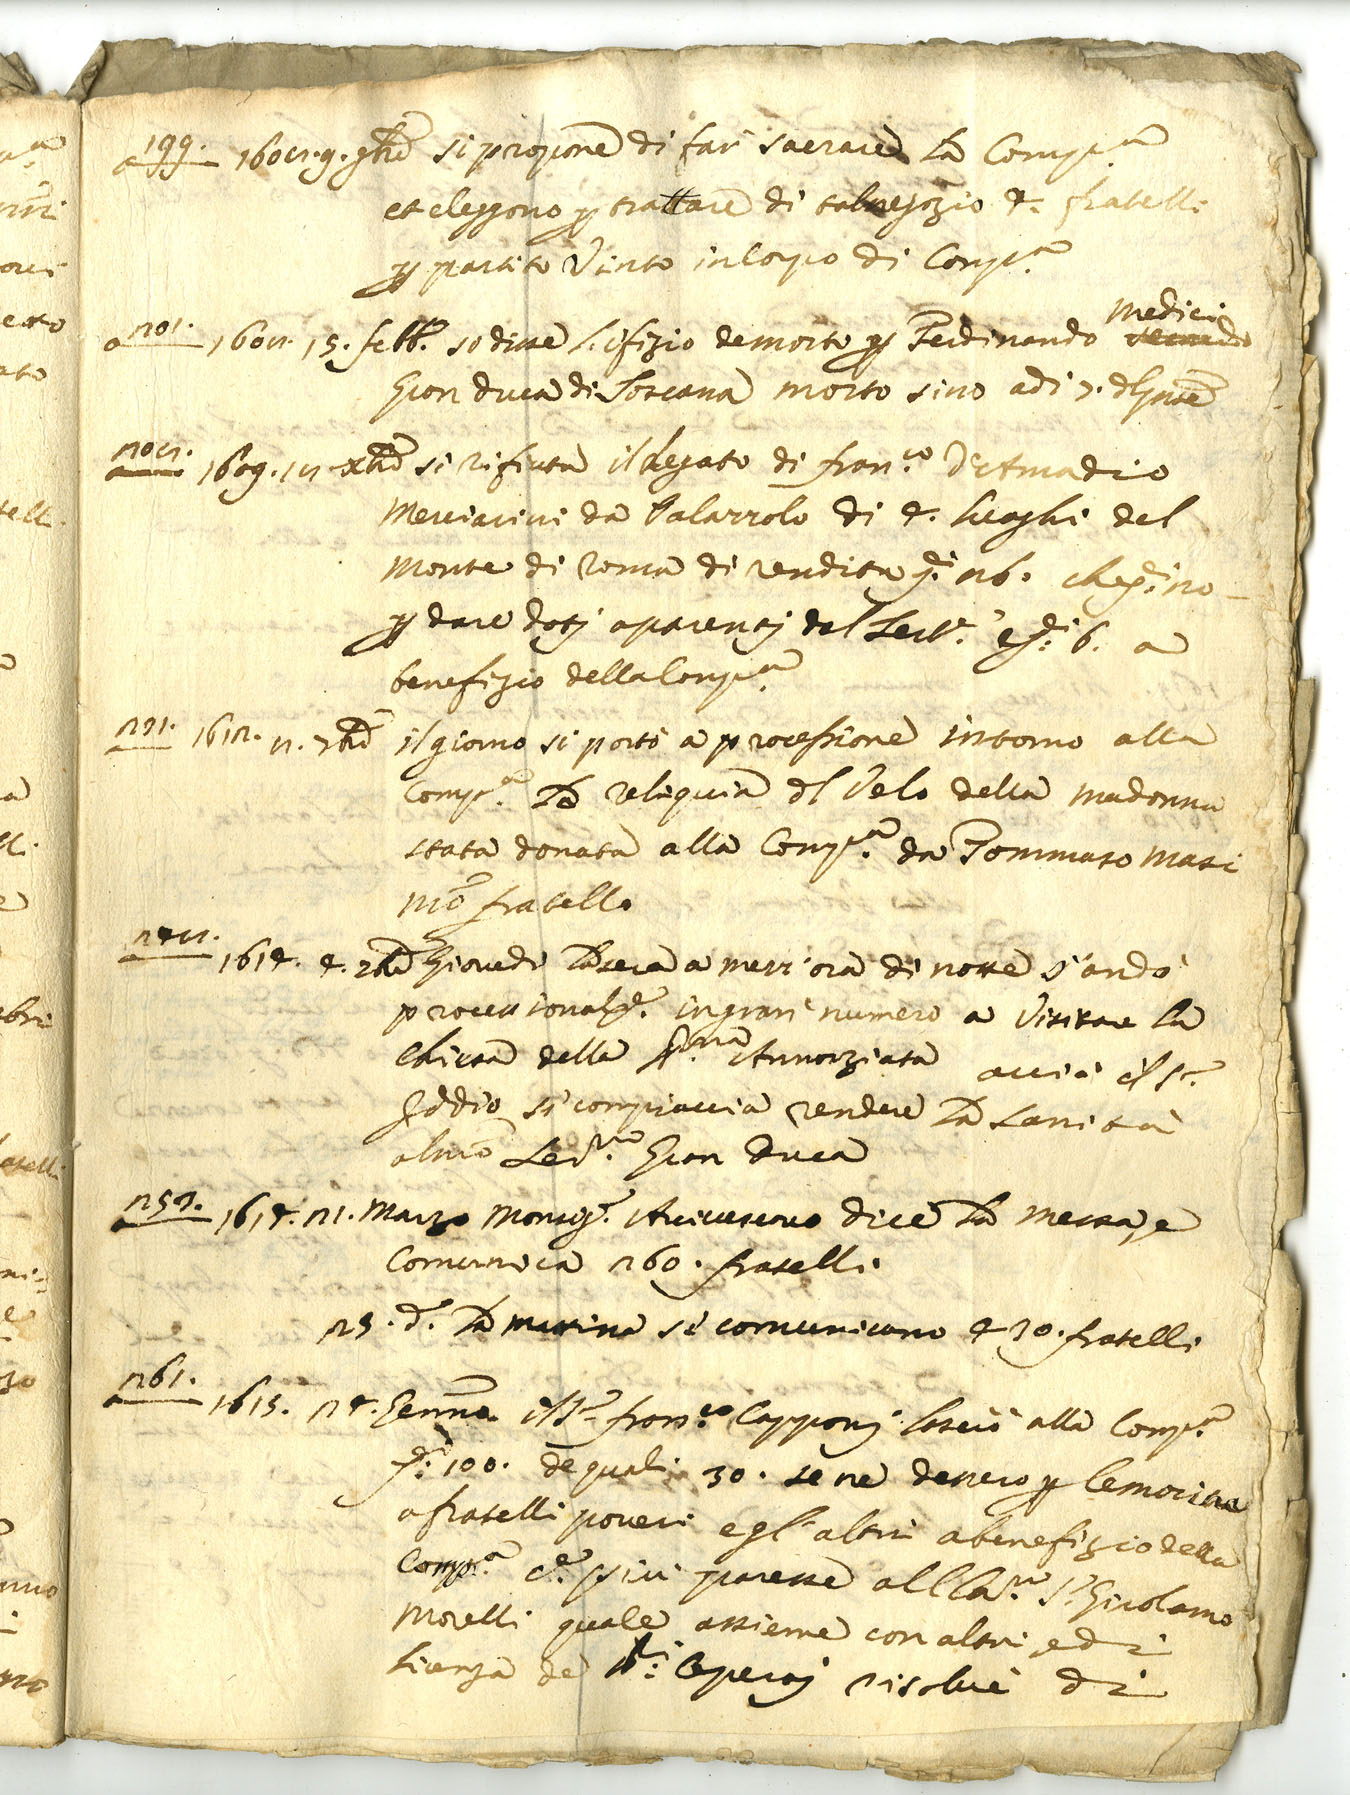 a 199. 1608. 9. 9bre si propone di far sacrare la Comp.a
et eleggono p trattare di tal negozio 4. fratelli
p partito Vinto in Corpo di Comp.a
a 201. 1608. 15. febb.o so disse l'ifizio de morto p Ferdinando Medici
Gran Duca di Toscana morto sino adi 7. d
208. 1609. 18 xbre si rifiuta il legato di Fran.co D'Amadio
Merciarini da Palazzolo di 4. luoghi del
Monte di Roma di rendita 26. che
p dare dotj a parentj del e 6. a
benefizio della Comp.a
221. 1612. il giorno si portò a processione intorno alla
Comp.a La reliquia dl Velo della Madonna
stata donata alla Comp.a da Tommaso Masi
nro fratello
1614. 4. Giovedi La sera a mezz'ora di notte s'andò
processionalm.e in gran numero a Visitare la
Chiesa della SS.ma Annonziata acciò il S.r
Iddio si compiaccia rendere La sanità
al nro Ser.mo Gran Duca
1614. 21. Marzo Monsig.r Arcivescovo dice La messa, e
Comunica 260. fratelli
25. d.o La mattina si comunicano 430. fratelli
261. 1615. 24. Genn.o il S.r Fran.co Capponj lasciò alla Comp.a
100. de quali 30. se ne dessero p lemosina
a fratelli poveri e gl'altri a benefizio della
Comp.a paresse all S.r Girolamo
Morelli quale assieme con altri, e di
licenza de Operaj risolvé di